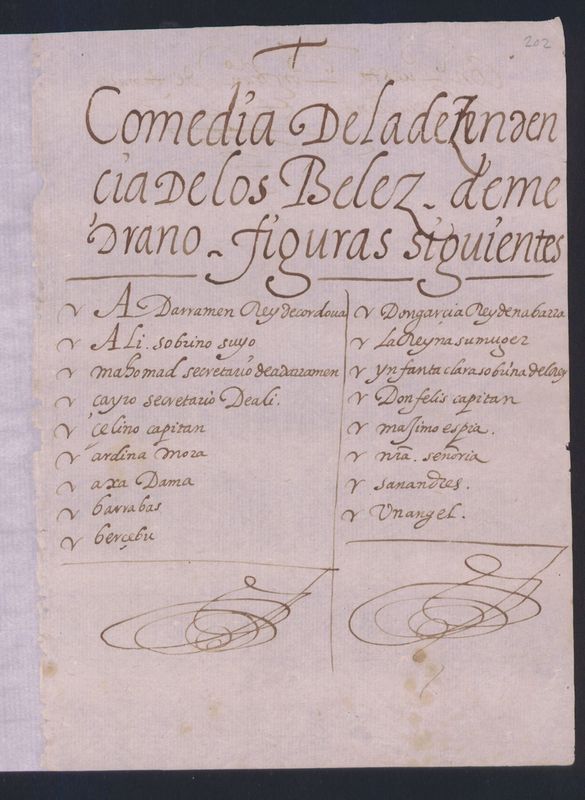 202
Comedia De la dezenden
cia De los Belez. de me
Drano. figuras siguientes
A Darramen Rey de cordoua
Ali. sobrino suyo
mahomad secretario de adarramen
cayro secretario De ali.
çelino capitan
ardina mora
axa Dama
barrabas
berçebu
Don garcia Rey de nabarra
La Reyna su muger
ynfanta clara sobrina del Rey
Don felis capitan
masimo espia.
nra. señoria
san andres.
Un angel.